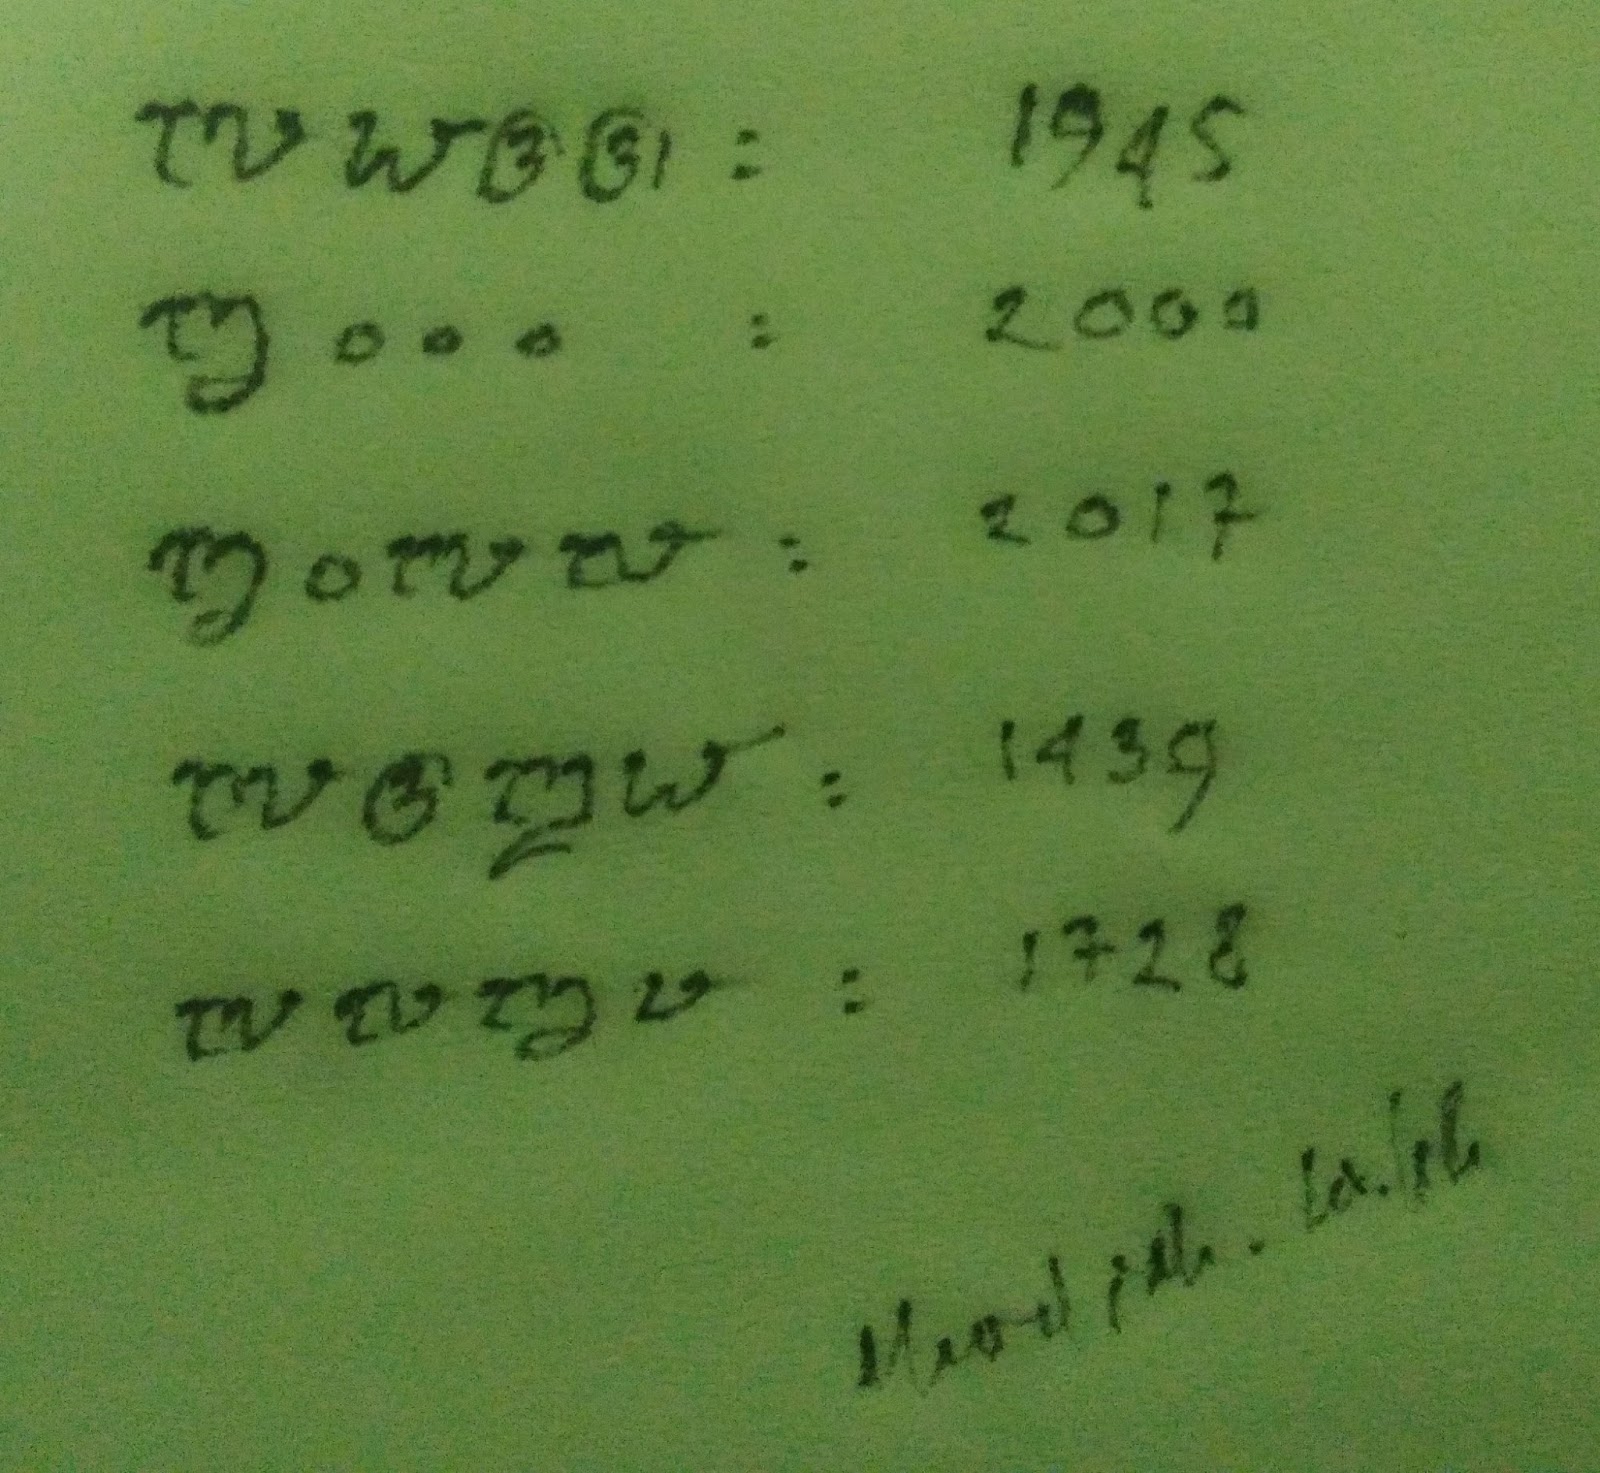 ꧑꧙꧔꧕ : 1945
꧒꧐꧐꧐ : 2000
꧒꧐꧑꧗ : 2017
꧑꧔꧓꧙ : 1439
꧑꧗꧒꧘ : 1728